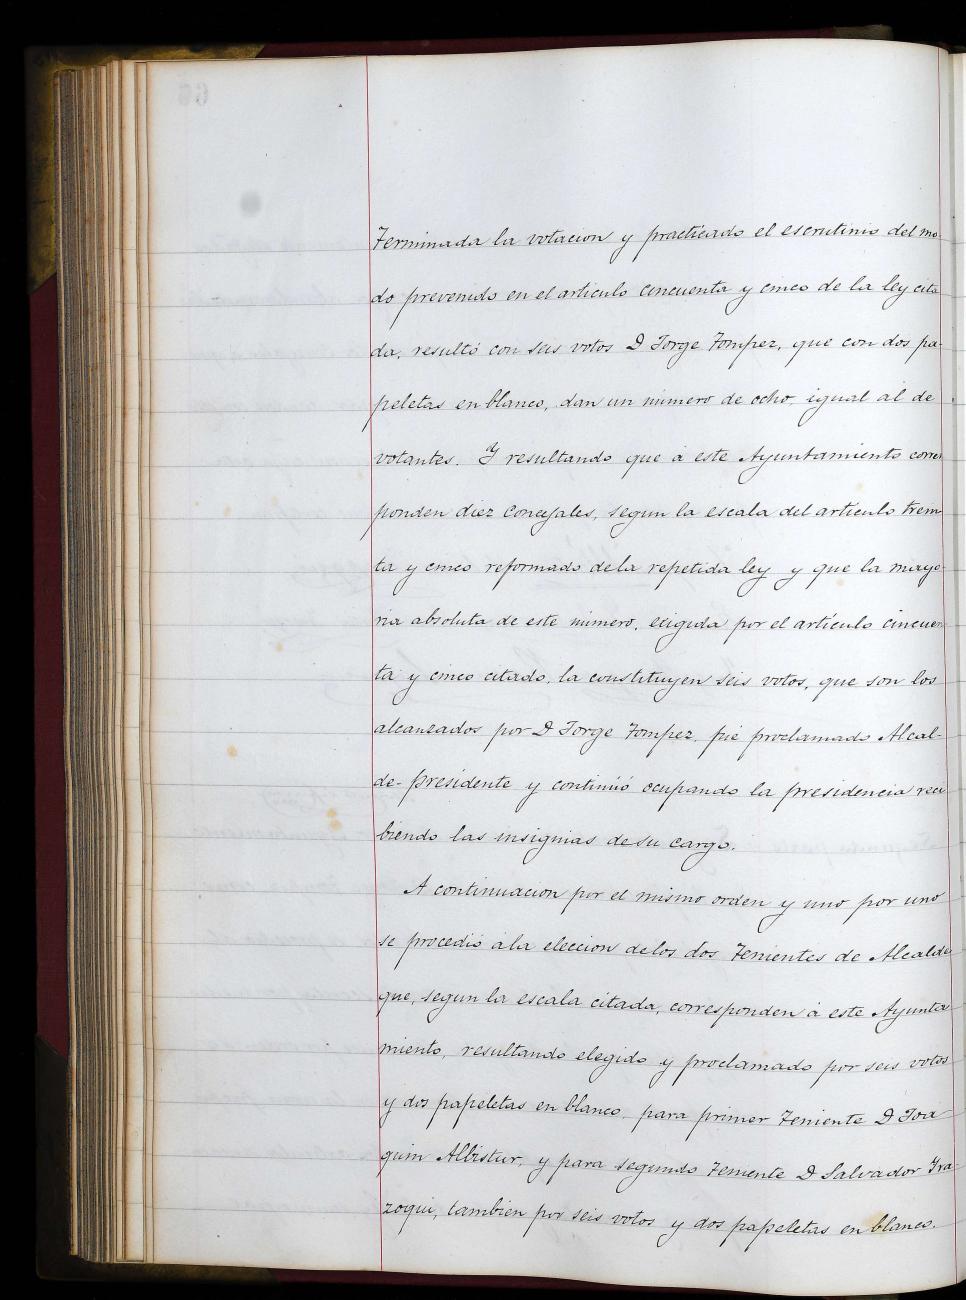 Terminada la votacion y practicado el escrutinio del mo-
do prevenido en el articulo cincuenta y cinco de la ley cita
da, resultó con seis votos D Jorge Tompez, que con dos pa-
peletas en blanco, dan un número de ocho, igual al de
votantes. Y resultando que á este Ayuntamiento corres
ponden diez Concejales, segun la escala del articulo trein
ta y cinco reformado de la repetida ley y que la mayo-
ria absoluta de este número, exigida por el artículo cincuen
ta y cinco citado, la constituyen seis votos, que son los
alcanzados por D Jorge Tompez, fué proclamado Alcal-
de-presidente y continúo ocupando la presidencia reci
biendo las insignias de su cargo.
A continuacion por el mismo orden y uno por uno
se procedió á la eleccion de los dos Tenientes de Alcalde
que, segun la escala citada, corresponden á este Ayunta
miento, resultando elegido y proclamado por seis votos
y dos papeletas en blanco, para primer Teniente D Joa
quin Albistur, y para segundo Teniente D Salvador Yra-
zoqui, tambien por seis votos y dos papeletas en blanco.